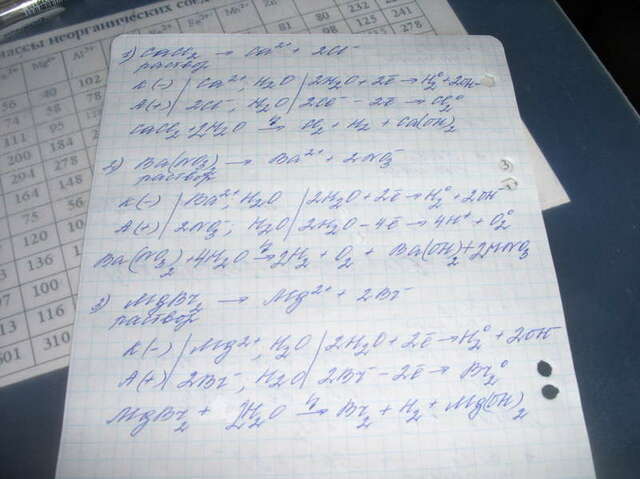 ассы неорганических соед
Mg²⁺ Al³⁺
56 40 102
74 58 78
111 95
200 184
204 278
164 148
75 56
120
136
100
116
601 310
81 80 232 223
98 125 241
1) CaCl₂ → Ca²⁺ + 2Cl⁻
раствор
K(-) | Ca²⁺, H₂O | 2H₂O + 2ē → H₂⁰ + 2OH⁻
A(+) | 2Cl⁻, H₂O | 2Cl⁻ - 2ē → Cl₂⁰
CaCl₂ + 2H₂O → Cl₂ + H₂ + Ca(OH)₂
2) Ba(NO₃)₂ → Ba²⁺ + 2NO₃⁻
раствор
K(-) | Ba²⁺, H₂O | 2H₂O + 2ē → H₂⁰ + 2OH⁻
A(+) | 2NO₃⁻, H₂O | 2H₂O - 4ē → 4H⁺ + O₂⁰
Ba(NO₃)₂ + 4H₂O → 2H₂ + O₂ + Ba(OH)₂ + 2HNO₃
3) MgBr₂ → Mg²⁺ + 2Br⁻
раствор
K(-) | Mg²⁺, H₂O | 2H₂O + 2ē → H₂⁰ + 2OH⁻
A(+) | 2Br⁻, H₂O | 2Br⁻ - 2ē → Br₂⁰
MgBr₂ + 2H₂O → Br₂ + H₂ + Mg(OH)₂